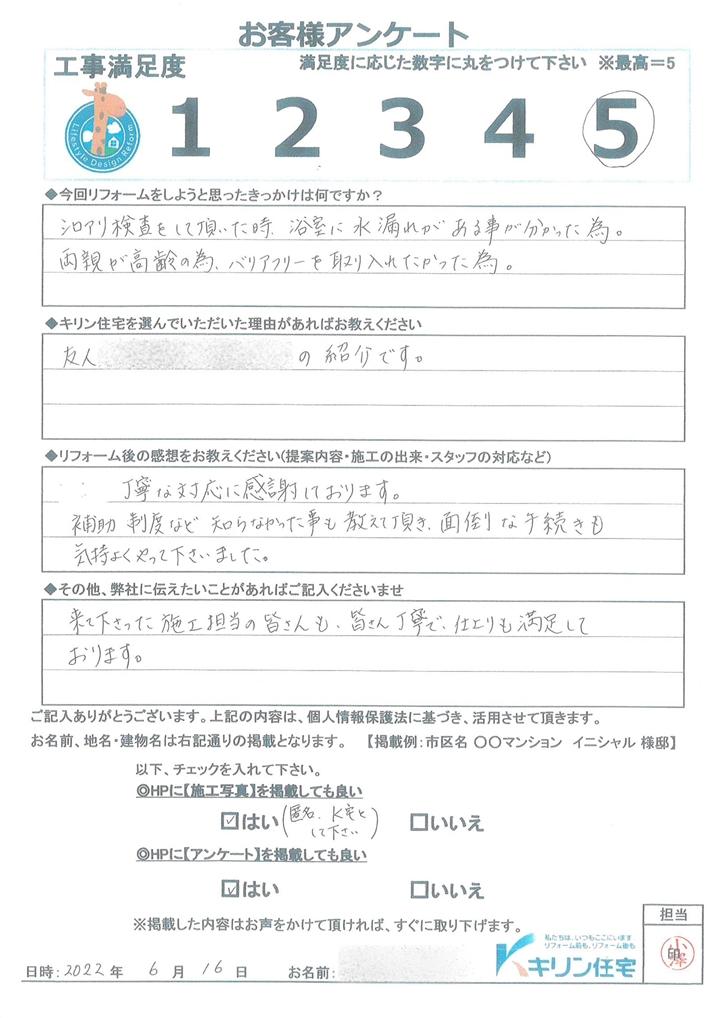 お客様アンケート
工事満足度
満足度に応じた数字に丸をつけて下さい ※最高＝5
Lifestyle Design Reform
1 2 3 4 5
◆今回リフォームをしようと思ったきっかけは何ですか？
シロアリ検査をして頂いた時、浴室に水漏れがある事が分かった為。
両親が高齢の為、バリアフリーを取り入れたかった為。
◆キリン住宅を選んでいただいた理由があればお教えください
友人 の紹介です。
◆リフォーム後の感想をお教えください(提案内容・施工の出来・スタッフの対応など)
丁寧な対応に感謝しております。
補助制度など知らなかった事も教えて頂き、面倒な手続きも
気持よくやって下さいました。
◆その他、弊社に伝えたいことがあればご記入くださいませ
来て下さった施工担当の皆さんも、皆さん丁寧で、仕上りも満足して
おります。
ご記入ありがとうございます。上記の内容は、個人情報保護法に基づき、活用させて頂きます。
お名前、地名・建物名は右記通りの掲載となります。 【掲載例：市区名 〇〇マンション イニシャル 様邸】
以下、チェックを入れて下さい。
◎HPに【施工写真】を掲載しても良い
☑はい (匿名、K宅と して下さい) □いいえ
◎HPに【アンケート】を掲載しても良い
☑はい □いいえ
※掲載した内容はお声をかけて頂ければ、すぐに取り下げます。
担当
私たちは、いつもここにいます
リフォーム前も、リフォーム後も
キリン住宅
印
小澤
日時：2022 年 6 月 16 日 お名前：